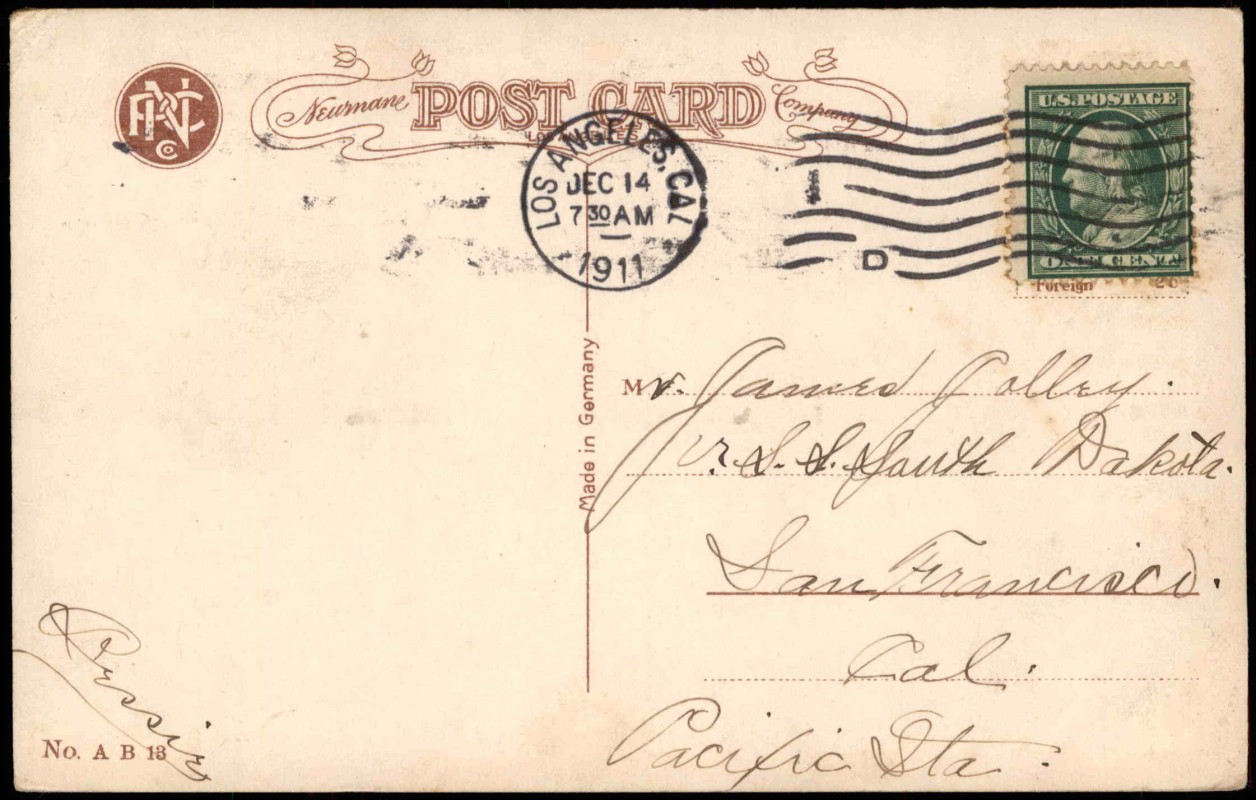 ANPC Co
Newmane POST CARD Company
LOS ANGELES, CAL.
DEC 14
7 30 AM
1911
D
U.S. POSTAGE
ONE CENT
Foreign
Made in Germany
Mr. James Jolley.
U.S.S. South Dakota.
San Francisco.
Cal.
Pacific Sta.
No. A B 13